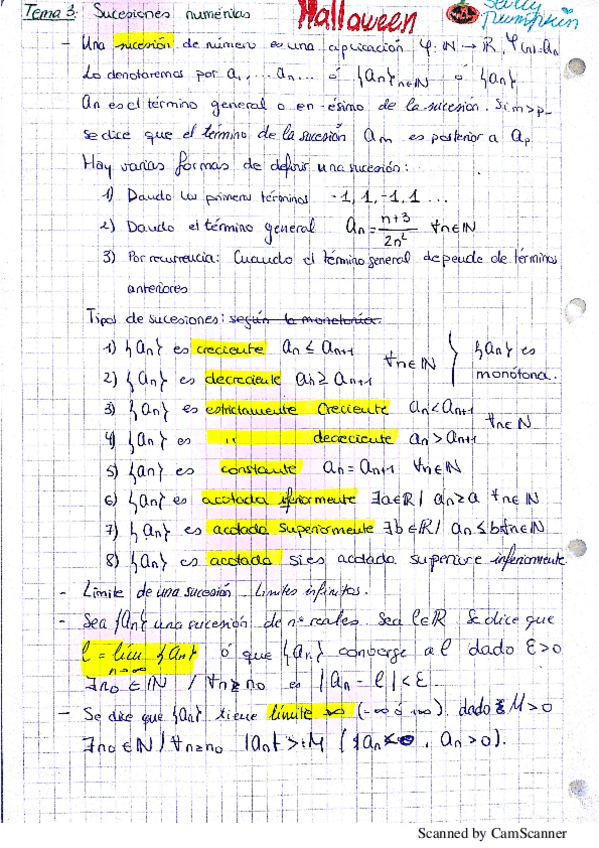 Tema 3: Sucesiones numéricas Halloween Pumpkin
- Una sucesión de números es una aplicación φ: ℕ → ℝ, φ(n)=an
Lo denotaremos por a1, ... an... ó {an}n∈ℕ ó {an}
an es el término general o en-ésimo de la sucesión. Si m>p
se dice que el término de la sucesión am es posterior a ap
Hay varias formas de definir una sucesión:
1) Dando los primeros términos -1, 1, -1, 1 ...
2) Dando el término general an = n+3 / 2n² ∀n∈ℕ
3) Por recurrencia: Cuando el término general depende de términos
anteriores
Tipos de sucesiones: según la monotonía.
1) {an} es creciente an ≤ an+1
∀n∈ℕ } {an} es monótona.
2) {an} es decreciente an ≥ an+1
3) {an} es estrictamente creciente an < an+1
∀n∈ℕ
4) {an} es " decreciente an > an+1
5) {an} es constante an = an+1 ∀n∈ℕ
6) {an} es acotada inferiormente ∃a∈ℝ / an ≥ a ∀n∈ℕ
7) {an} es acotada superiormente ∃b∈ℝ / an ≤ b ∀n∈ℕ
8) {an} es acotada si es acotada superior e inferiormente
- Límite de una sucesión. Límites infinitos.
- Sea {an} una sucesión de nos reales. Sea l∈ℝ Se dice que
l = lím {an} n→∞ ó que {an} converge a l dado ε>0
∃n0 ∈ ℕ / ∀n≥n0 es |an - l| < ε
- Se dice que {an} tiene límite ∞ (-∞ ó +∞) dado M>0
∃n0∈ℕ / ∀n≥n0 |an| > M ( an<0, an>0).
Scanned by CamScanner